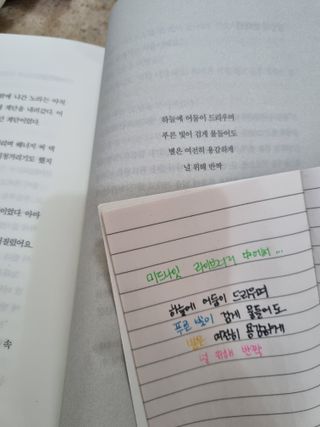 밖에 나간 노라는 아직
계단을 내려갔다. 이
계단이었다.
리며 배너지 씨 댁
하늘에 어둠이 드리우며
푸른 빛이 검게 물들어도
별은 여전히 용감하게
널 위해 반짝
미드나잇 라이브러리 中에서 ...
하늘에 어둠이 드리우며
푸른 빛이 검게 물들어도
별은 여전히 용감하게
널 위해 반짝